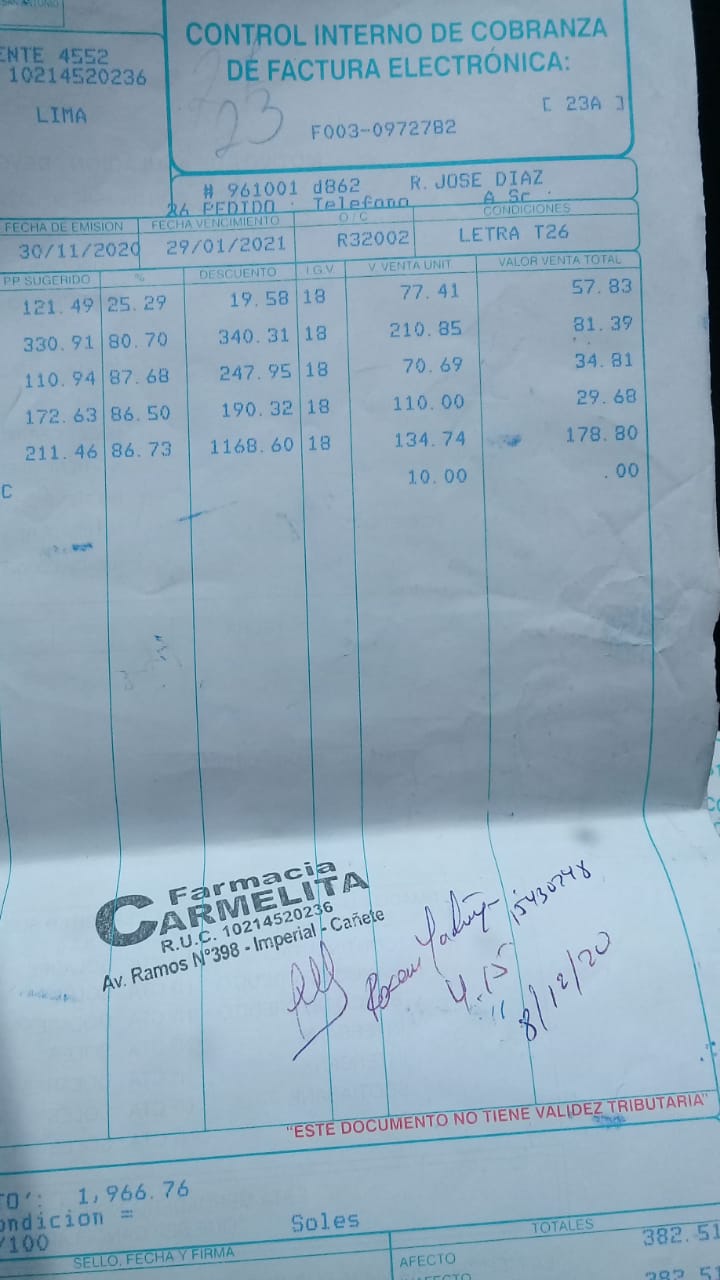 SAN ANTONIO
ENTE 4552
10214520236
LIMA
CONTROL INTERNO DE COBRANZA
DE FACTURA ELECTRÓNICA:
23
[ 23A ]
F003-0972782
# 961001 d862 R. JOSE DIAZ
26 PEDIDO : Telefono A Sr .
FECHA DE EMISION FECHA VENCIMIENTO O / C CONDICIONES
30/11/2020 29/01/2021 R32002 LETRA T26
PP SUGERIDO % DESCUENTO I.G.V. V VENTA UNIT VALOR VENTA TOTAL
121.49 25.29 19.58 18 77.41 57.83
330.91 80.70 340.31 18 210.85 81.39
110.94 87.68 247.95 18 70.69 34.81
172.63 86.50 190.32 18 110.00 29.68
211.46 86.73 1168.60 18 134.74 178.80
10.00 .00
C
Farmacia
CARMELITA
R.U.C. 10214520236
Av. Ramos N°398 - Imperial - Cañete
15430748
4.15
8/12/20
"ESTE DOCUMENTO NO TIENE VALIDEZ TRIBUTARIA"
TO': 1,966.76
ondicion =
/100 Soles
SELLO, FECHA Y FIRMA
TOTALES
382.51
AFECTO
382.51